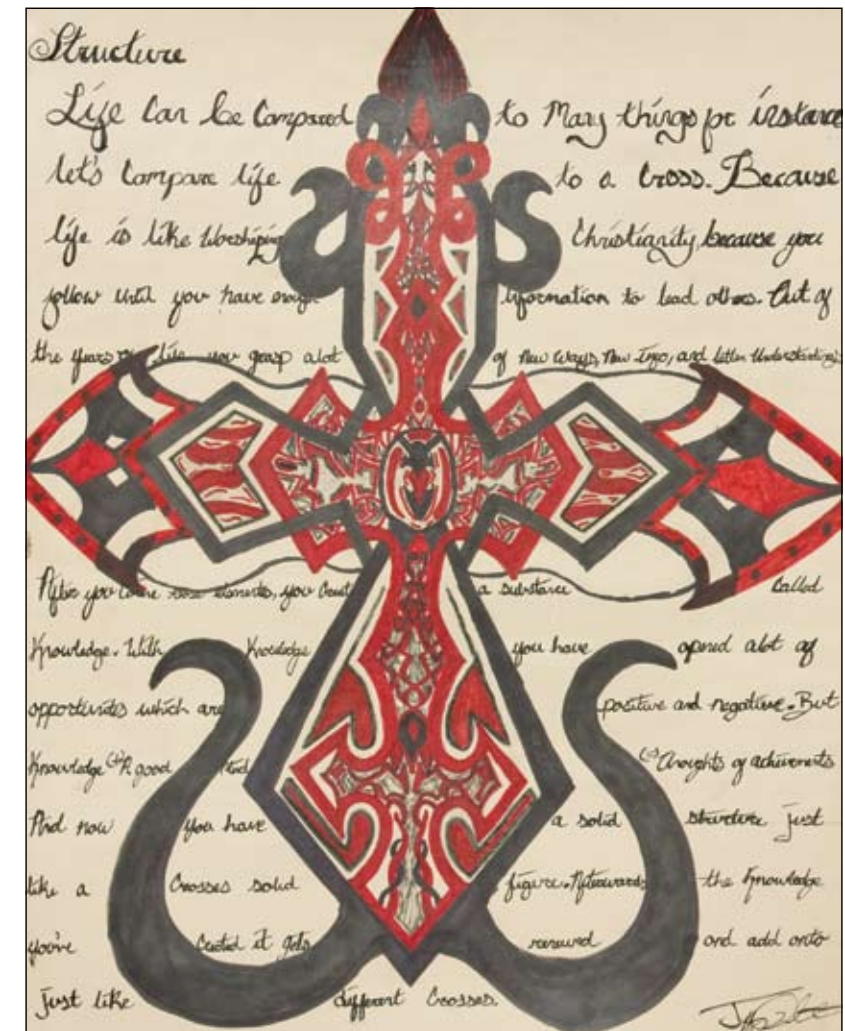 Structure
Life Can be Compared to Many things for instance
let's Compare life to a Cross. Because
life is like Worshiping Christianity because you
follow until you have enough information to lead others. Out of
the years life you grasp alot of New Ways, New Info, and better Understanding
After you these elements, you Create a substance Called
Knowledge. With Knowledge you have opened alot of
opportunites which are positive and negative. But
Knowledge (+) A good (=) thoughts of achievments
And now you have a solid structure just
like a Crosses solid figure. Afterwards the Knowledge
you've Created it gets and add onto
Just like different Crosses.